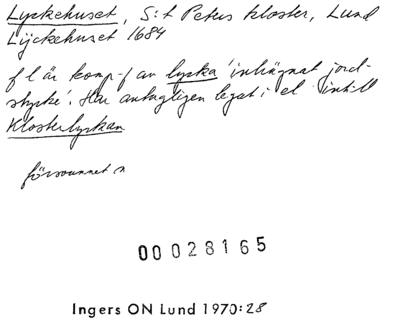 Lyckehuset, S:t Peters kloster, Lund
Lÿckehuset 1684
f l är komp-f av lycka 'inhägnat jord-
stycke'. Har antagligen legat i el. intill
Klosterlyckan
försvunnet n
00028165
Ingers ON Lund 1970:28